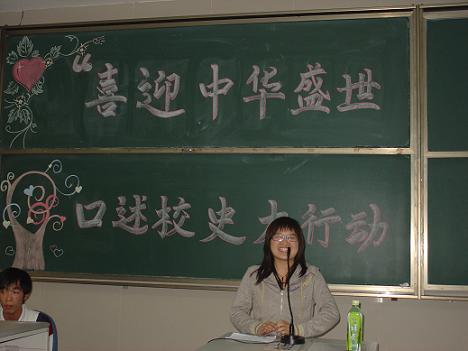 “喜迎中华盛世
口述校史大行动